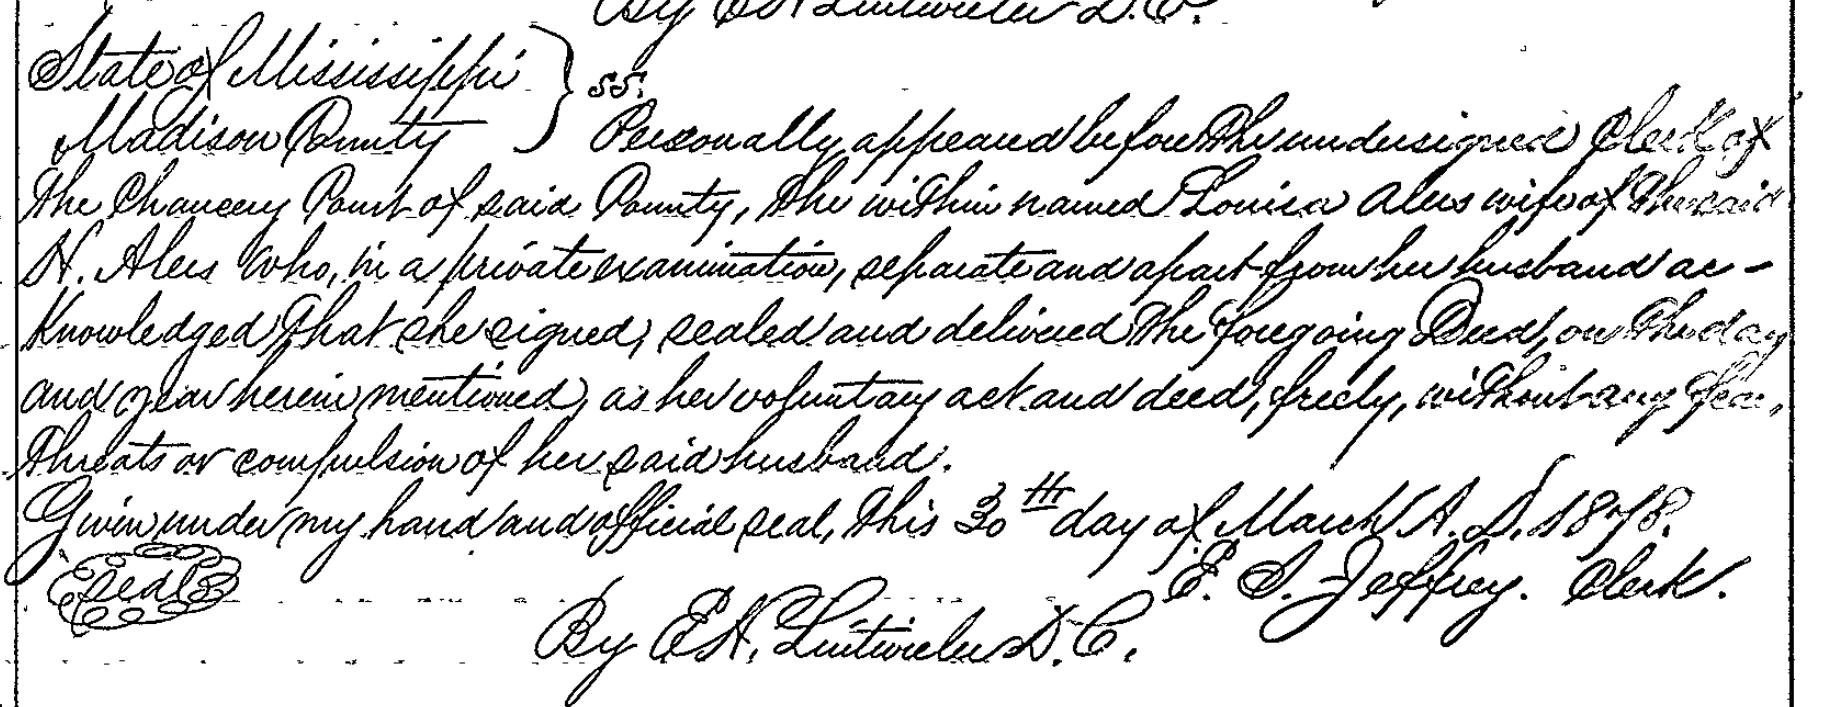 By E A Lintwieler D.C.
State of Mississippi } ss.
Madison County Personally appeared before the undersigned Clerk of
the Chancery Court of said County, the within named Louisa Alers wife of the said
H. Alers who, in a private examination, separate and apart from her husband ac-
knowledged, that she signed, sealed and delivered the foregoing Deed, on the day
and year herein mentioned, as her voluntary act and deed, freely, without any fear,
threats or compulsion of her said husband.
Given under my hand and official seal, this 30th day of March A.D. 1878.
Seal E. S. Jeffrey. Clerk.
By E A. Lintwieler D.C.